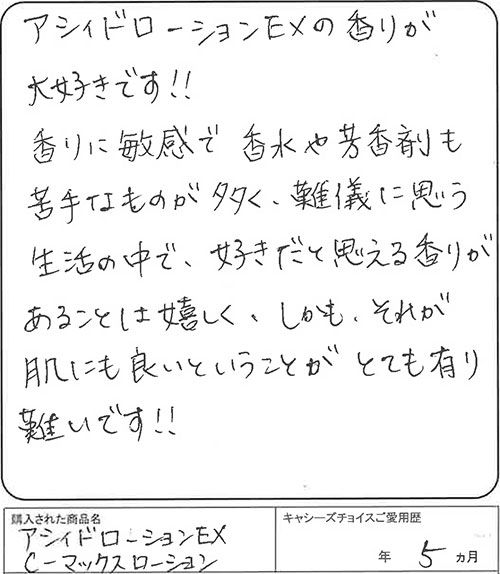 アシィドローションEXの香りが
大好きです!!
香りに敏感で香水や芳香剤も
苦手なものが多く、難儀に思う
生活の中で、好きだと思える香りが
あることは嬉しく、しかも、それが
肌にも良いということがとても有り
難いです!!
購入された商品名
アシィドローションEX
C-マックスローション
キャシーズチョイスご愛用歴
年 5 ヵ月